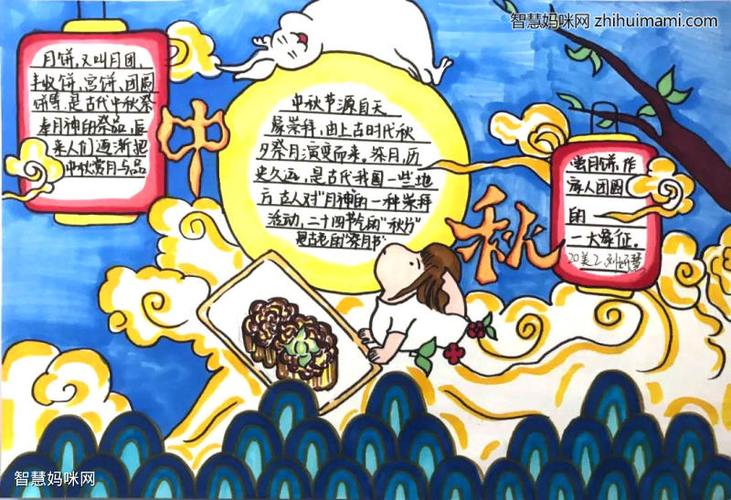 智慧妈咪网 zhihuimami.com
月饼，又叫月团，
丰收饼，宫饼，团圆
饼等，是古代中秋祭
奉月神的祭品，后
来人们逐渐把
中秋赏月与品
中
中秋节源自天
象崇拜，由上古时代秋
夕祭月演变而来。祭月，历
史久远，是古代我国一些地
方古人对"月神"的一种崇拜
活动，二十四节气的"秋分"
是古老的"祭月节"
秋
尝月饼，作
为人团圆
的
一大象征。
20美乙
智慧妈咪网